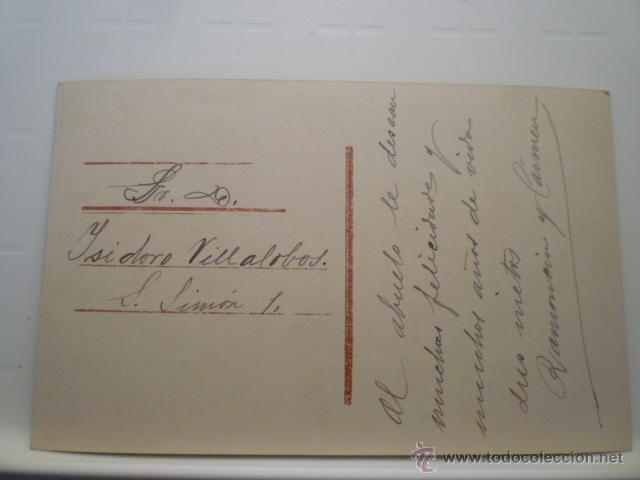 Sr. D.
Isidoro Villalobos.
S. Simón 1.
Al abuelo le desean
muchas felicidades y
muchos años de vida
dus nietos
Ramoncin y Carmen
www.todocoleccion.net